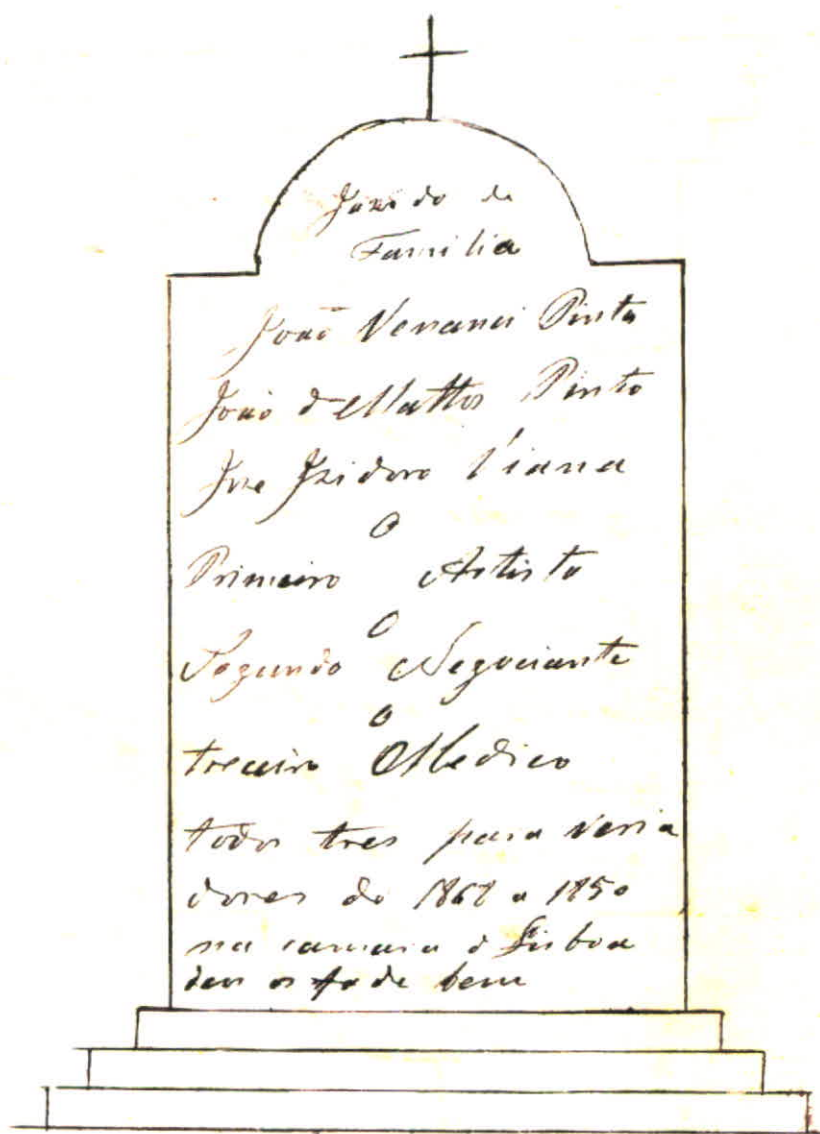 Jazi do de
Familia
João Venanci Pinto
João d Mattos Pinto
Jose Izidoro Viana
O
Primeiro Artista
O
Segundo Negociante
O
treceiro Medico
todos tres para veria
dores de 1868 a 1850
na camara d Lisboa
deus os fo de bem